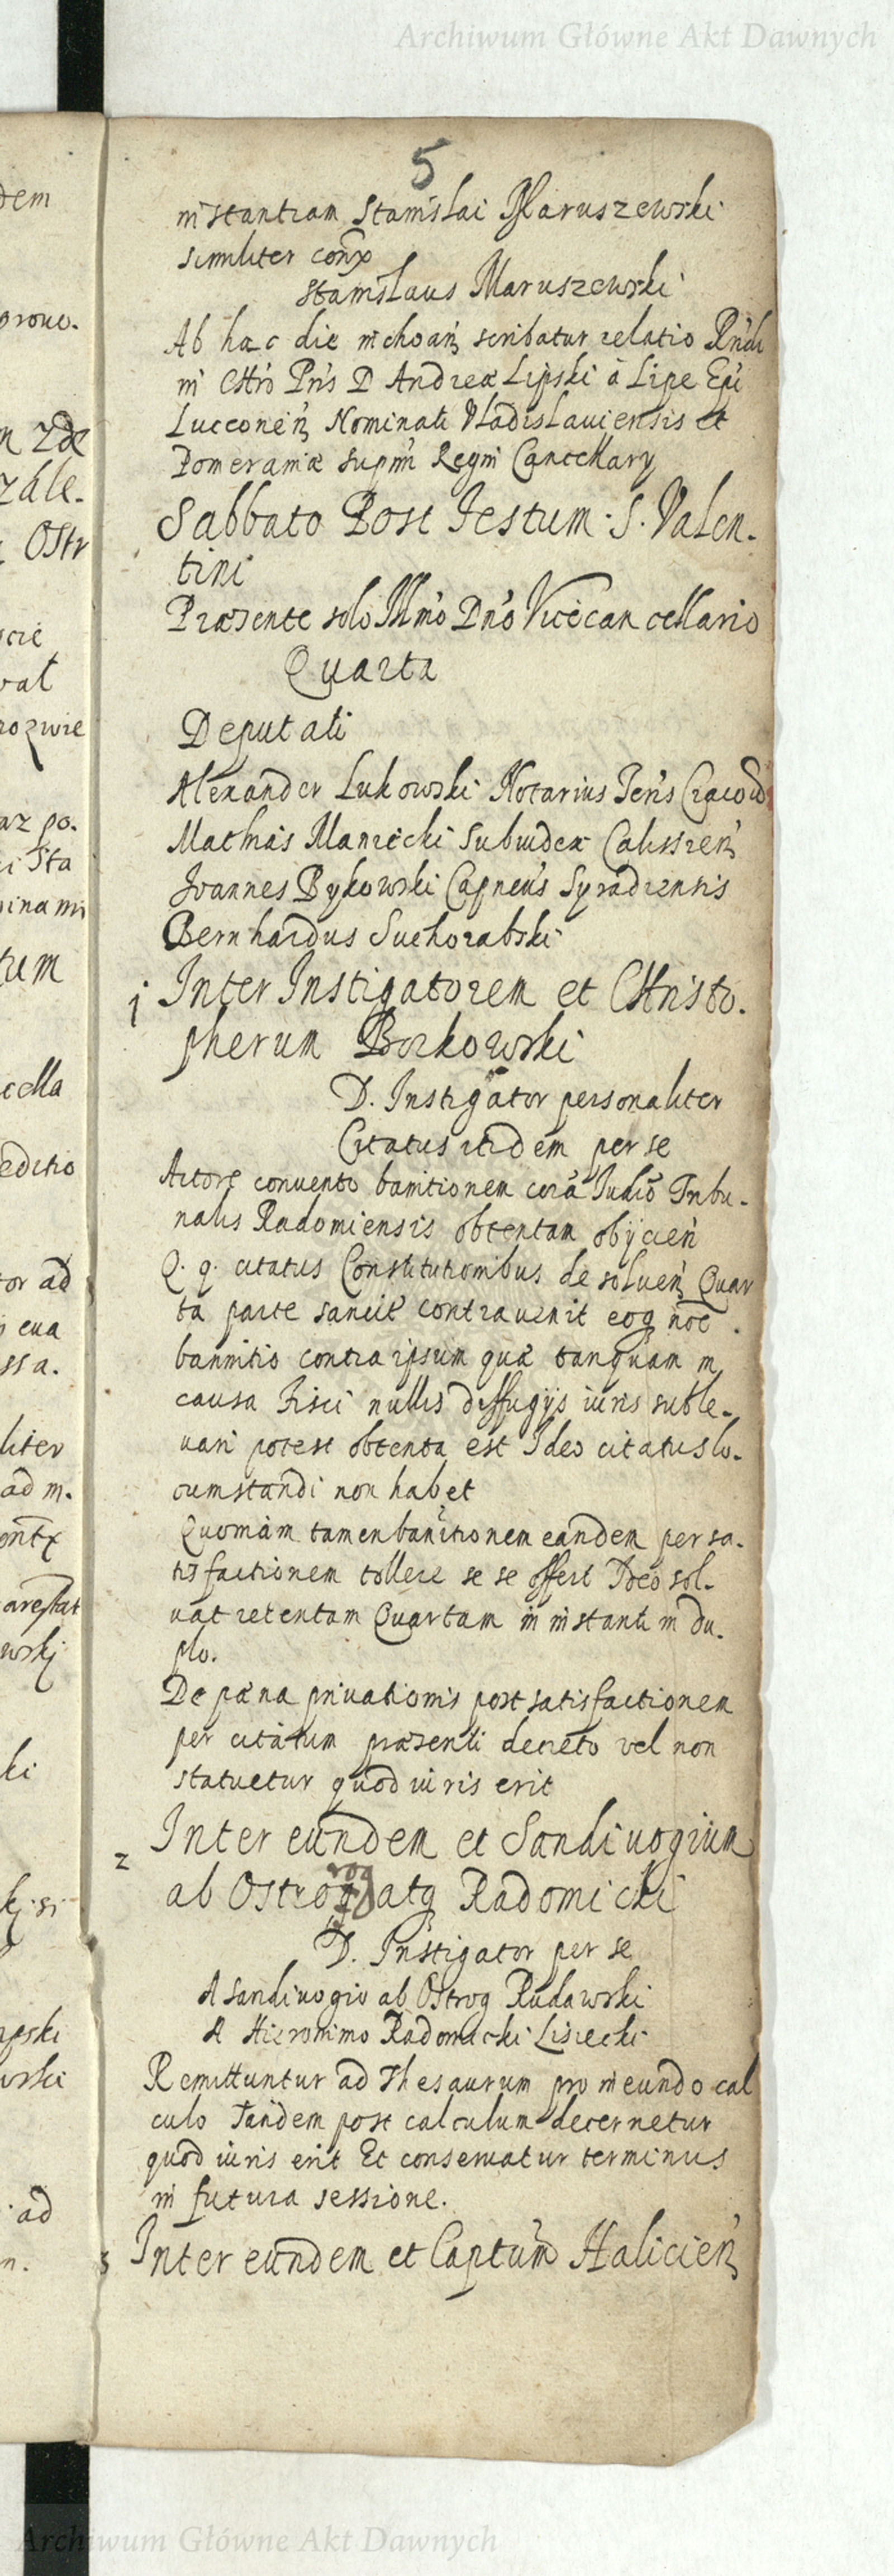 Archiwum Główne Akt Dawnych
5
instantiam Stanislai Maruszewski
similiter
Stanislaus Maruszewski
Ab hac die inchoan̄ scribatur relatio
D Andreæ Lipski à Lipe Epi
Lucconen̄ Nominati Vladislauiensis et
Pomeraniæ supm̄i Regni Cancellary
Sabbato Post Festum S. Valen-
tini
Præsente solo Illmo Dno Vicecancellario
Quarta
Deputati
Alexander Lukowski Notarius Terris
Mathias Maniecki Subiudex Calissien̄
Ioannes Bykowski Syradiensis
Bernhardus Suchorabski
1 Inter Instigatorem et Christo-
pherum Borkowski
D. Instigator personaliter
Citatus itidem per se
Actore conuento banitionem corā Iudiō Tribu-
nalis Radomiensis obtentam obijcien̄
Q. q. citatus Constitutionibus de soluen̄ Quar
ta parte contrauenit eoq noē
bannitio contra ipsum quæ tanquam in
causa Fisci nullis diffugijs iuris suble-
uari potest obtenta est Ideo citatus lo-
cum standi non habet
Quoniam tamen banitionem eandem per sa-
tisfactionem tollere se se offert Ideo sol-
uat retentam Quartam in instanti in du-
plo.
De pæna priuationis post satisfactionem
per citatum præsenti decreto vel non
statuetur quod iuris erit
2 Inter eundem et Sandiuogium
ab Ostrorog atq Radomicki
D. Instigator per se
A Sandiuogio ab Ostrog Rudawski
A Hieronimo Radomicki Lisiecki
Remittuntur ad Thesaurum pro ineundo cal
culo Tandem post calculum decernetur
quod iuris erit Et conseruatur terminus
in futura sessione.
3 Inter eundem et Captum Halicien̄
Archiwum Główne Akt Dawnych